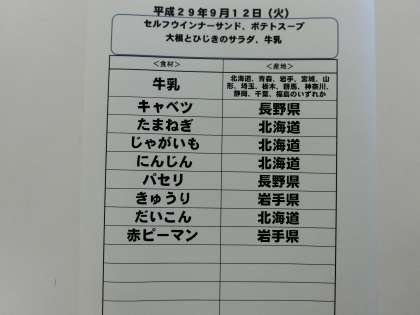 平成29年9月12日（火）
セルフウインナーサンド、ポテトスープ
大根とひじきのサラダ、牛乳
＜食材＞ ＜産地＞
牛乳 北海道、青森、岩手、宮城、山
形、埼玉、栃木、群馬、神奈川、
静岡、千葉、福島のいずれか
キャベツ 長野県
たまねぎ 北海道
じゃがいも 北海道
にんじん 北海道
パセリ 長野県
きゅうり 岩手県
だいこん 北海道
赤ピーマン 岩手県